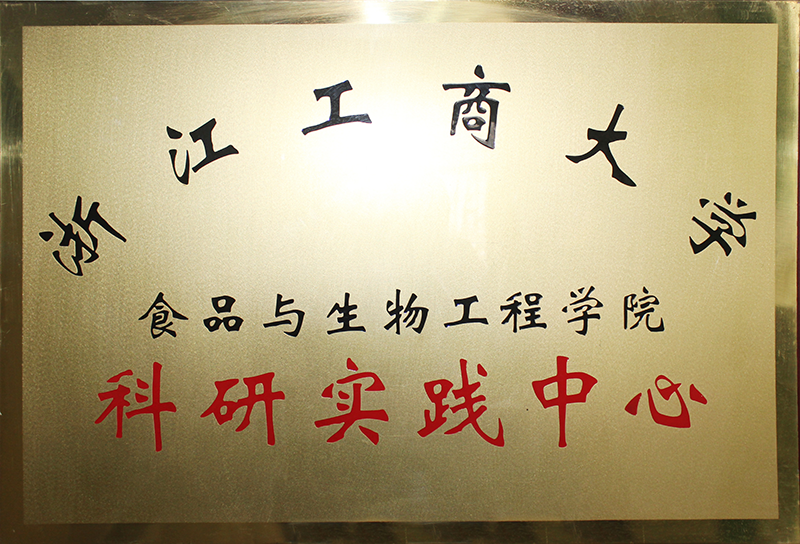 浙江工商大学
食品与生物工程学院
科研实践中心